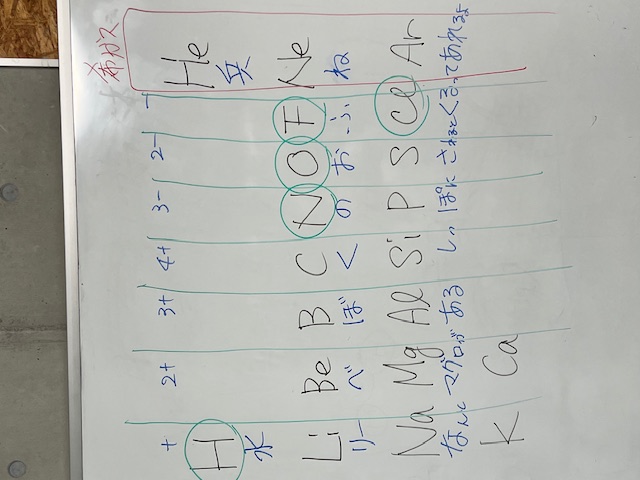 + 2+ 3+ 4+ 3- 2- - 希ガス
H He
水 兵
Li Be B C N O F Ne
リー べ ぼ く の お ふ ね
Na Mg Al Si P S Cl Ar
なんと マグロが ある しっぽに さわるとくるってあれるよ
K Ca